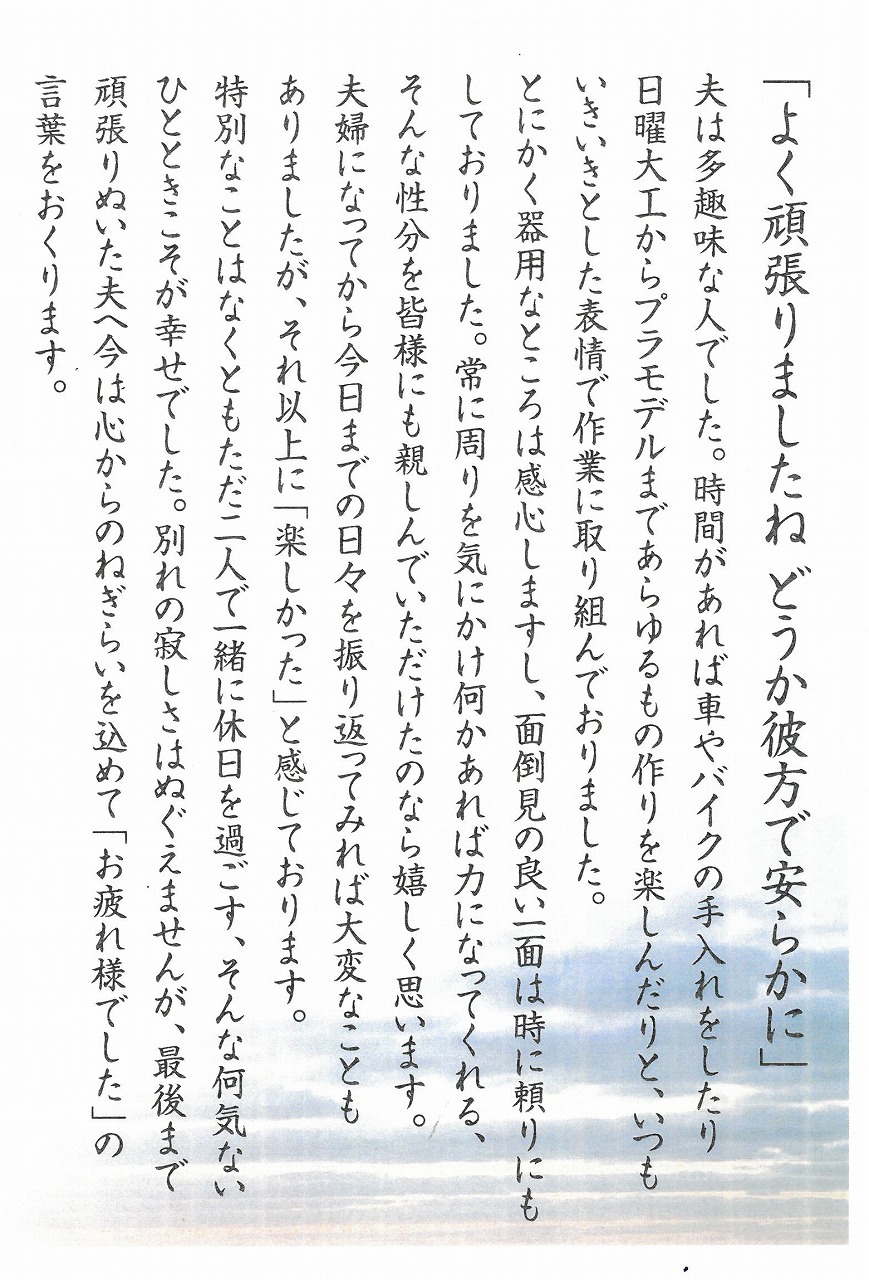 「よく頑張りましたね どうか彼方で安らかに」
夫は多趣味な人でした。時間があれば車やバイクの手入れをしたり
日曜大工からプラモデルまであらゆるもの作りを楽しんだりと、いつも
いきいきとした表情で作業に取り組んでおりました。
とにかく器用なところは感心しますし、面倒見の良い一面は時に頼りにも
しておりました。常に周りを気にかけ何かあれば力になってくれる、
そんな性分を皆様にも親しんでいただけたのなら嬉しく思います。
夫婦になってから今日までの日々を振り返ってみれば大変なことも
ありましたが、それ以上に「楽しかった」と感じております。
特別なことはなくともただ二人で一緒に休日を過ごす、そんな何気ない
ひとときこそが幸せでした。別れの寂しさはぬぐえませんが、最後まで
頑張りぬいた夫へ今は心からのねぎらいを込めて「お疲れ様でした」の
言葉をおくります。